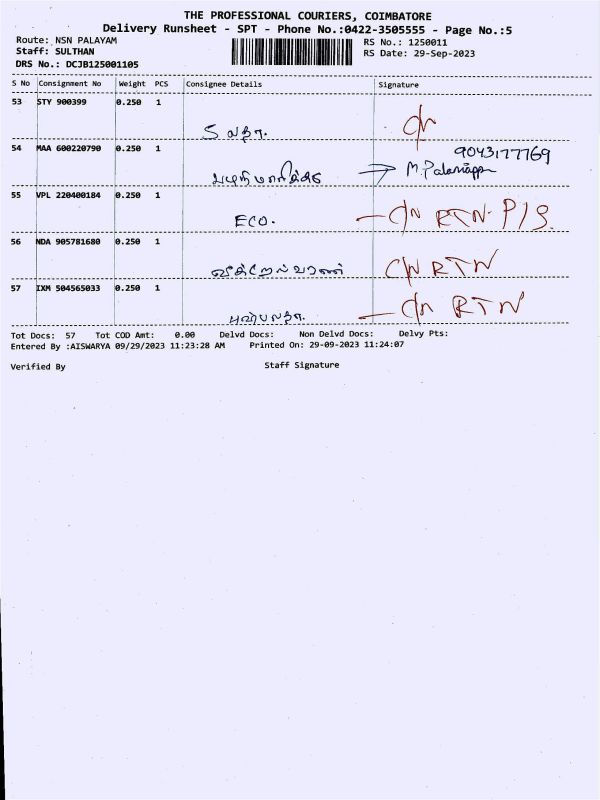 THE PROFESSIONAL COURIERS, COIMBATORE
Delivery Runsheet - SPT - Phone No.:0422-3505555 - Page No.:5
Route: NSN PALAYAM RS No.: 1250011
Staff: SULTHAN RS Date: 29-Sep-2023
DRS No.: DCJB125001105
S No Consignment No Weight PCS Consignee Details Signature
53 STY 900399 0.250 1
S லதா. C/N
54 MAA 600220790 0.250 1 9043177769
M. Palaniappan
55 VPL 220400184 0.250 1
ECO. C/N RTN P/S.
56 NDA 905781680 0.250 1
C/N RTN
57 IXM 504565033 0.250 1
புஷ்பலதா. C/N RTN
Tot Docs: 57 Tot COD Amt: 0.00 Delvd Docs: Non Delvd Docs: Delvy Pts:
Entered By :AISWARYA 09/29/2023 11:23:28 AM Printed On: 29-09-2023 11:24:07
Verified By Staff Signature